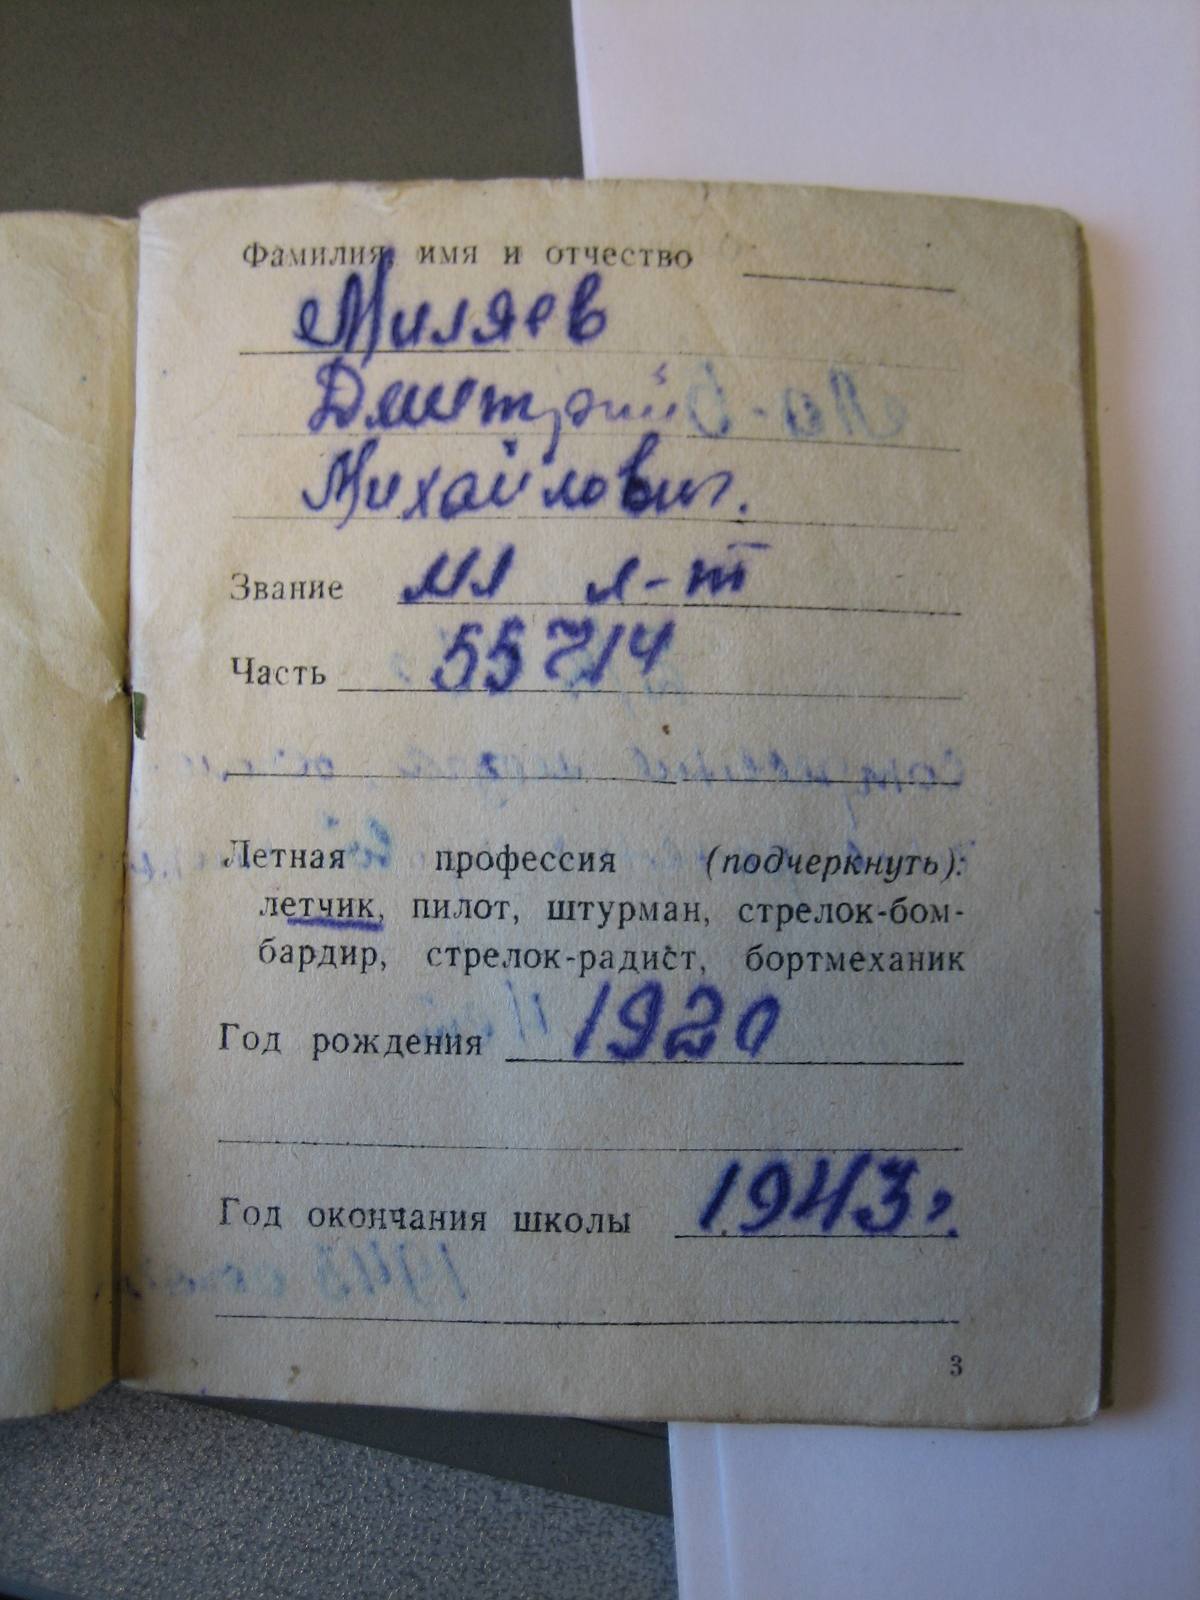 Фамилия, имя и отчество
Миляев
Дмитрий
Михайлович.
Звание мл л-т
Часть 55714
Летная профессия (подчеркнуть):
летчик, пилот, штурман, стрелок-бом-
бардир, стрелок-радист, бортмеханик
Год рождения 1920
Год окончания школы 1943 г.
3